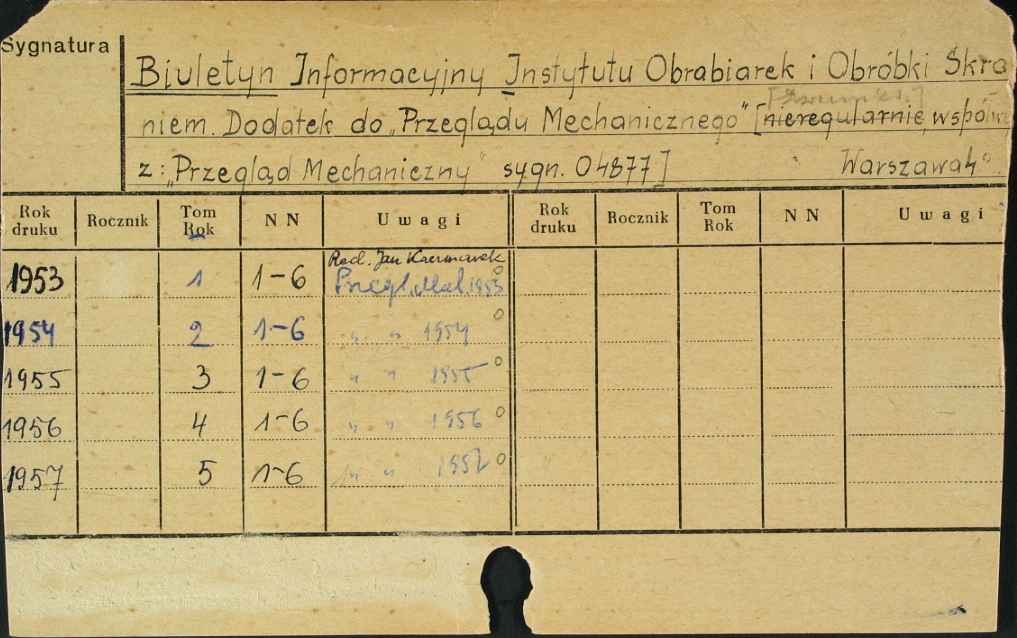 Sygnatura
Biuletyn Informacyjny Instytutu Obrabiarek i Obróbki Skra
niem. Dodatek do „Przeglądu Mechanicznego" [nieregularnie, współwy
z: „Przegląd Mechaniczny" sygn. 04877] Warszawa 4°.
Rok druku Rocznik Tom Rok NN Uwagi Rok druku Rocznik Tom Rok NN Uwagi
Red. Jan Kaczmarek
1953 1 1-6 Przegl. Mech. 1953 o
1954 2 1-6 " " 1954 o
1955 3 1-6 " " 1955 o
1956 4 1-6 " " 1956 o
1957 5 1-6 " " 1957 o